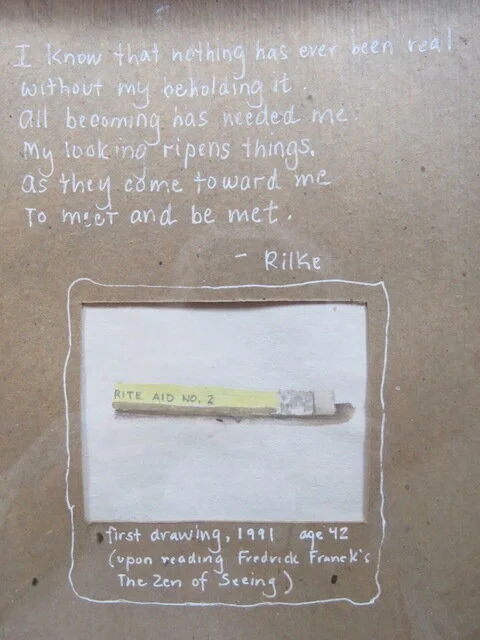 I know that nothing has ever been real
without my beholding it.
All becoming has needed me.
My looking ripens things.
as they come toward me
To meet and be met.
- Rilke
RITE AID NO. 2
first drawing, 1991 age 42
(upon reading Fredrick Franck's
The Zen of Seeing)